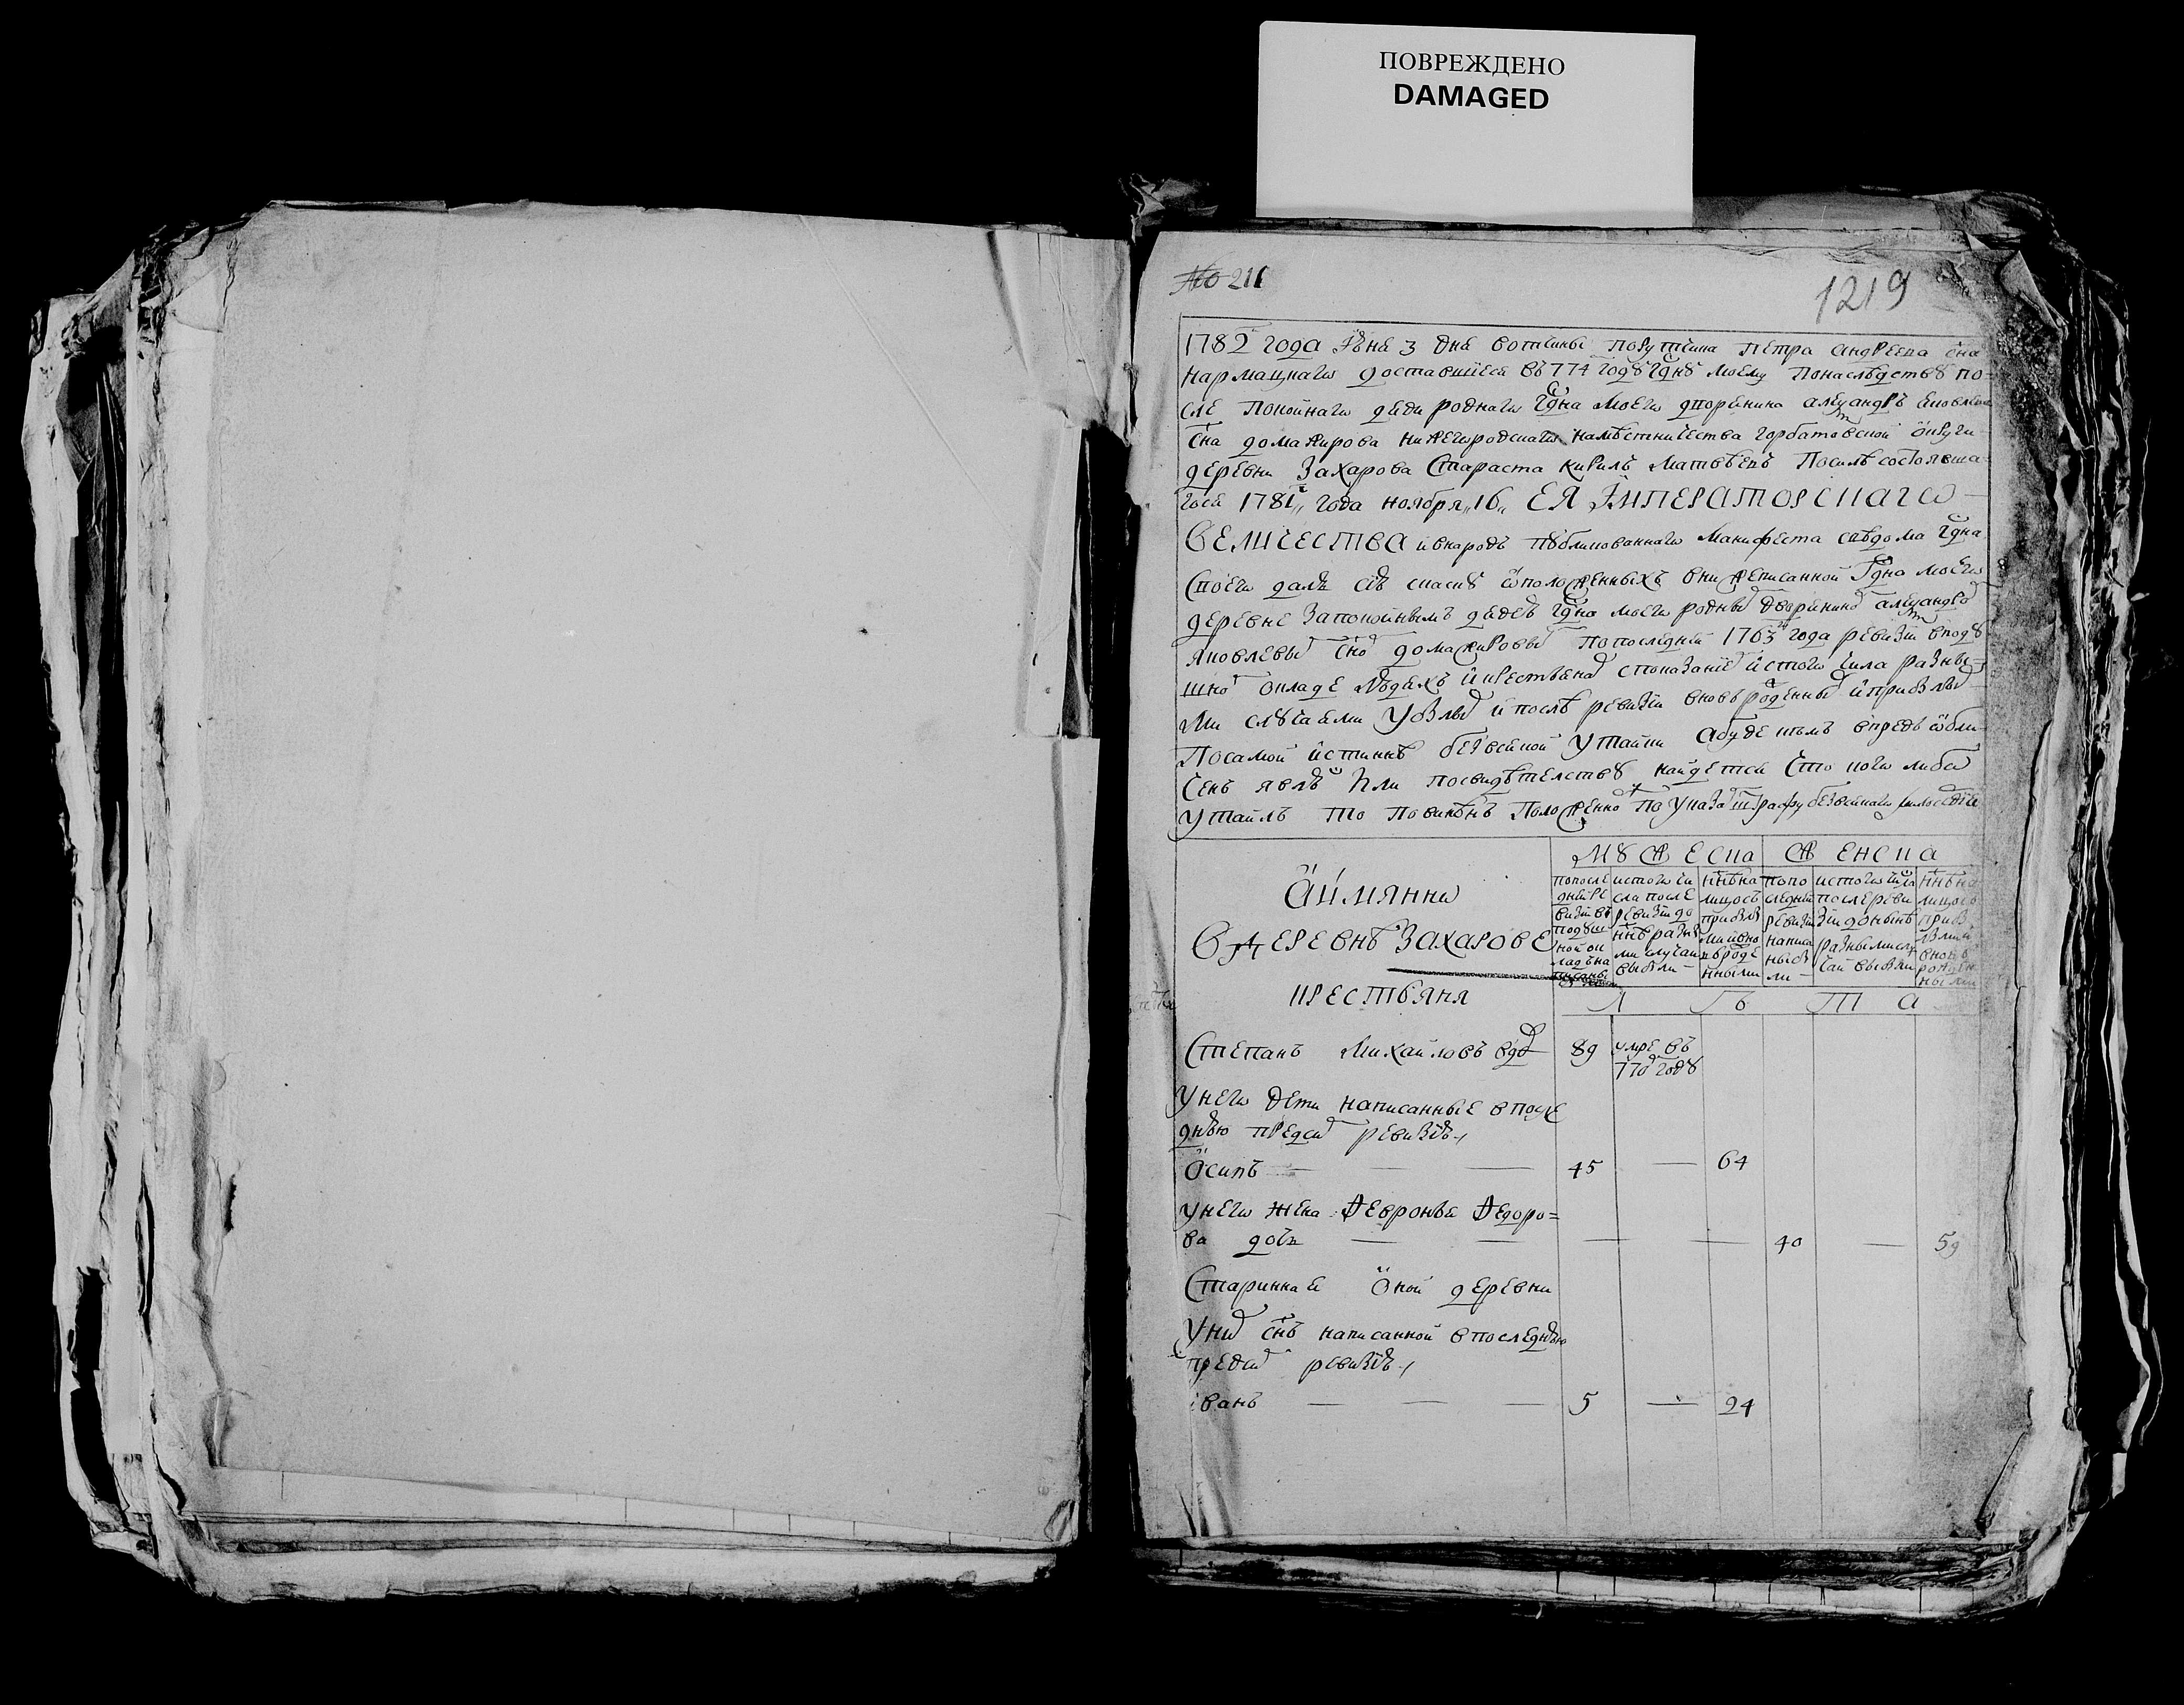 ПОВРЕЖДЕНО
DAMAGED
№ 211
1219
1782 года июня 3 дня вотчины порутчика петра андреева сна
доставшиеся въ 774 году гдну моему понаследству по=
сле покойнаго дяди роднаго гдна моего дворенина александръ яковлева
сна домажирова нижегородскаго наместничества горбатовской округи
деревни Захарова Староста кирилъ матвеевъ Посиле состоявша
гося 1781 года ноября 16 ЕЯ ІМПЕРАТОРСКАГО
ВЕЛИЧЕСТВА ивнароде публикованнаго манифеста сведома гдна
своего далъ сию скаску оположенныхъ внижеписанной Гдна моего
деревне Запокойнымъ дядею гдна моего родным дворенином александром
яковлевым сном домажировым попоследней 1763 года ревизіи вподу
шном окладе людехъ икрестьянах споказанием истого числа разны
ми случаями убылых ипосле ревизіи вновь рожденных иприбылых
Посамой истинне безвсякой утайки абуде кемъ впредь обли
ченъ явлюсь или посвидетелству найдется что кого либо
утаилъ то повиненъ положенному поуказам штрафу безвсякаго милосердия
Аимянно
МУЖЕСКА ЖЕНСКА
попосле дней ревизіи вподушной окладъ написаны
исто​го числа после ревизіи до нне разными случаи выбыли
нне на лицось прибылыми ивновь рожденными
попоследней ревизіи написаны были
истого числа послеревизіи доныне разными случаи выбыли
нне на лицось прибылыми вновь рожденными
ВДЕРЕВНЕ ЗАХАРОВЕ
КРЕСТЬЯНЯ
Л Ѣ Т А
Степанъ Михайловъ вдов 89 умре въ
770 году
Унего дети написанные впосле
днюю предсим ревизію
Осипъ — — — 45 — 64
унего жена Февронья Федоро=
ва дочь — — — — 40 — 59
Старинная Оной деревни
Уних снъ написанной впоследнюю
предсим ревизію
иванъ — — — 5 — 24